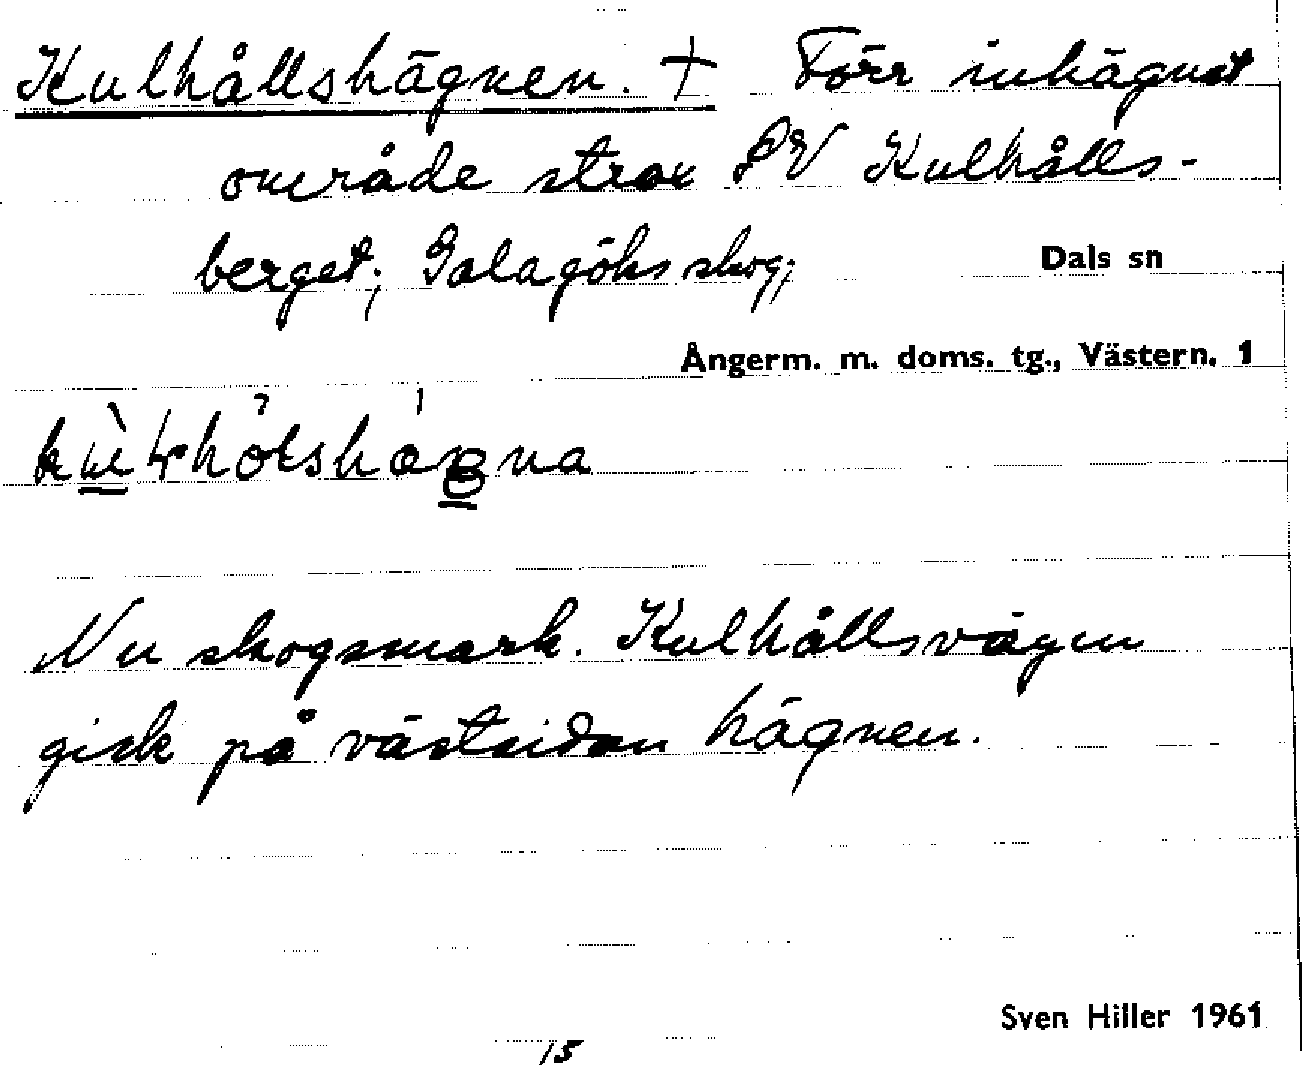 Kulhållshägnen. + Förr inhägnat
område strax SV Kulhålls-
berget; Galagöks skog;
Dals sn
Ångerm. m. doms. tg., Västern. 1
Nu skogsmark. Kulhållsvägen
gick på västsidan hägnen.
Sven Hiller 1961
15